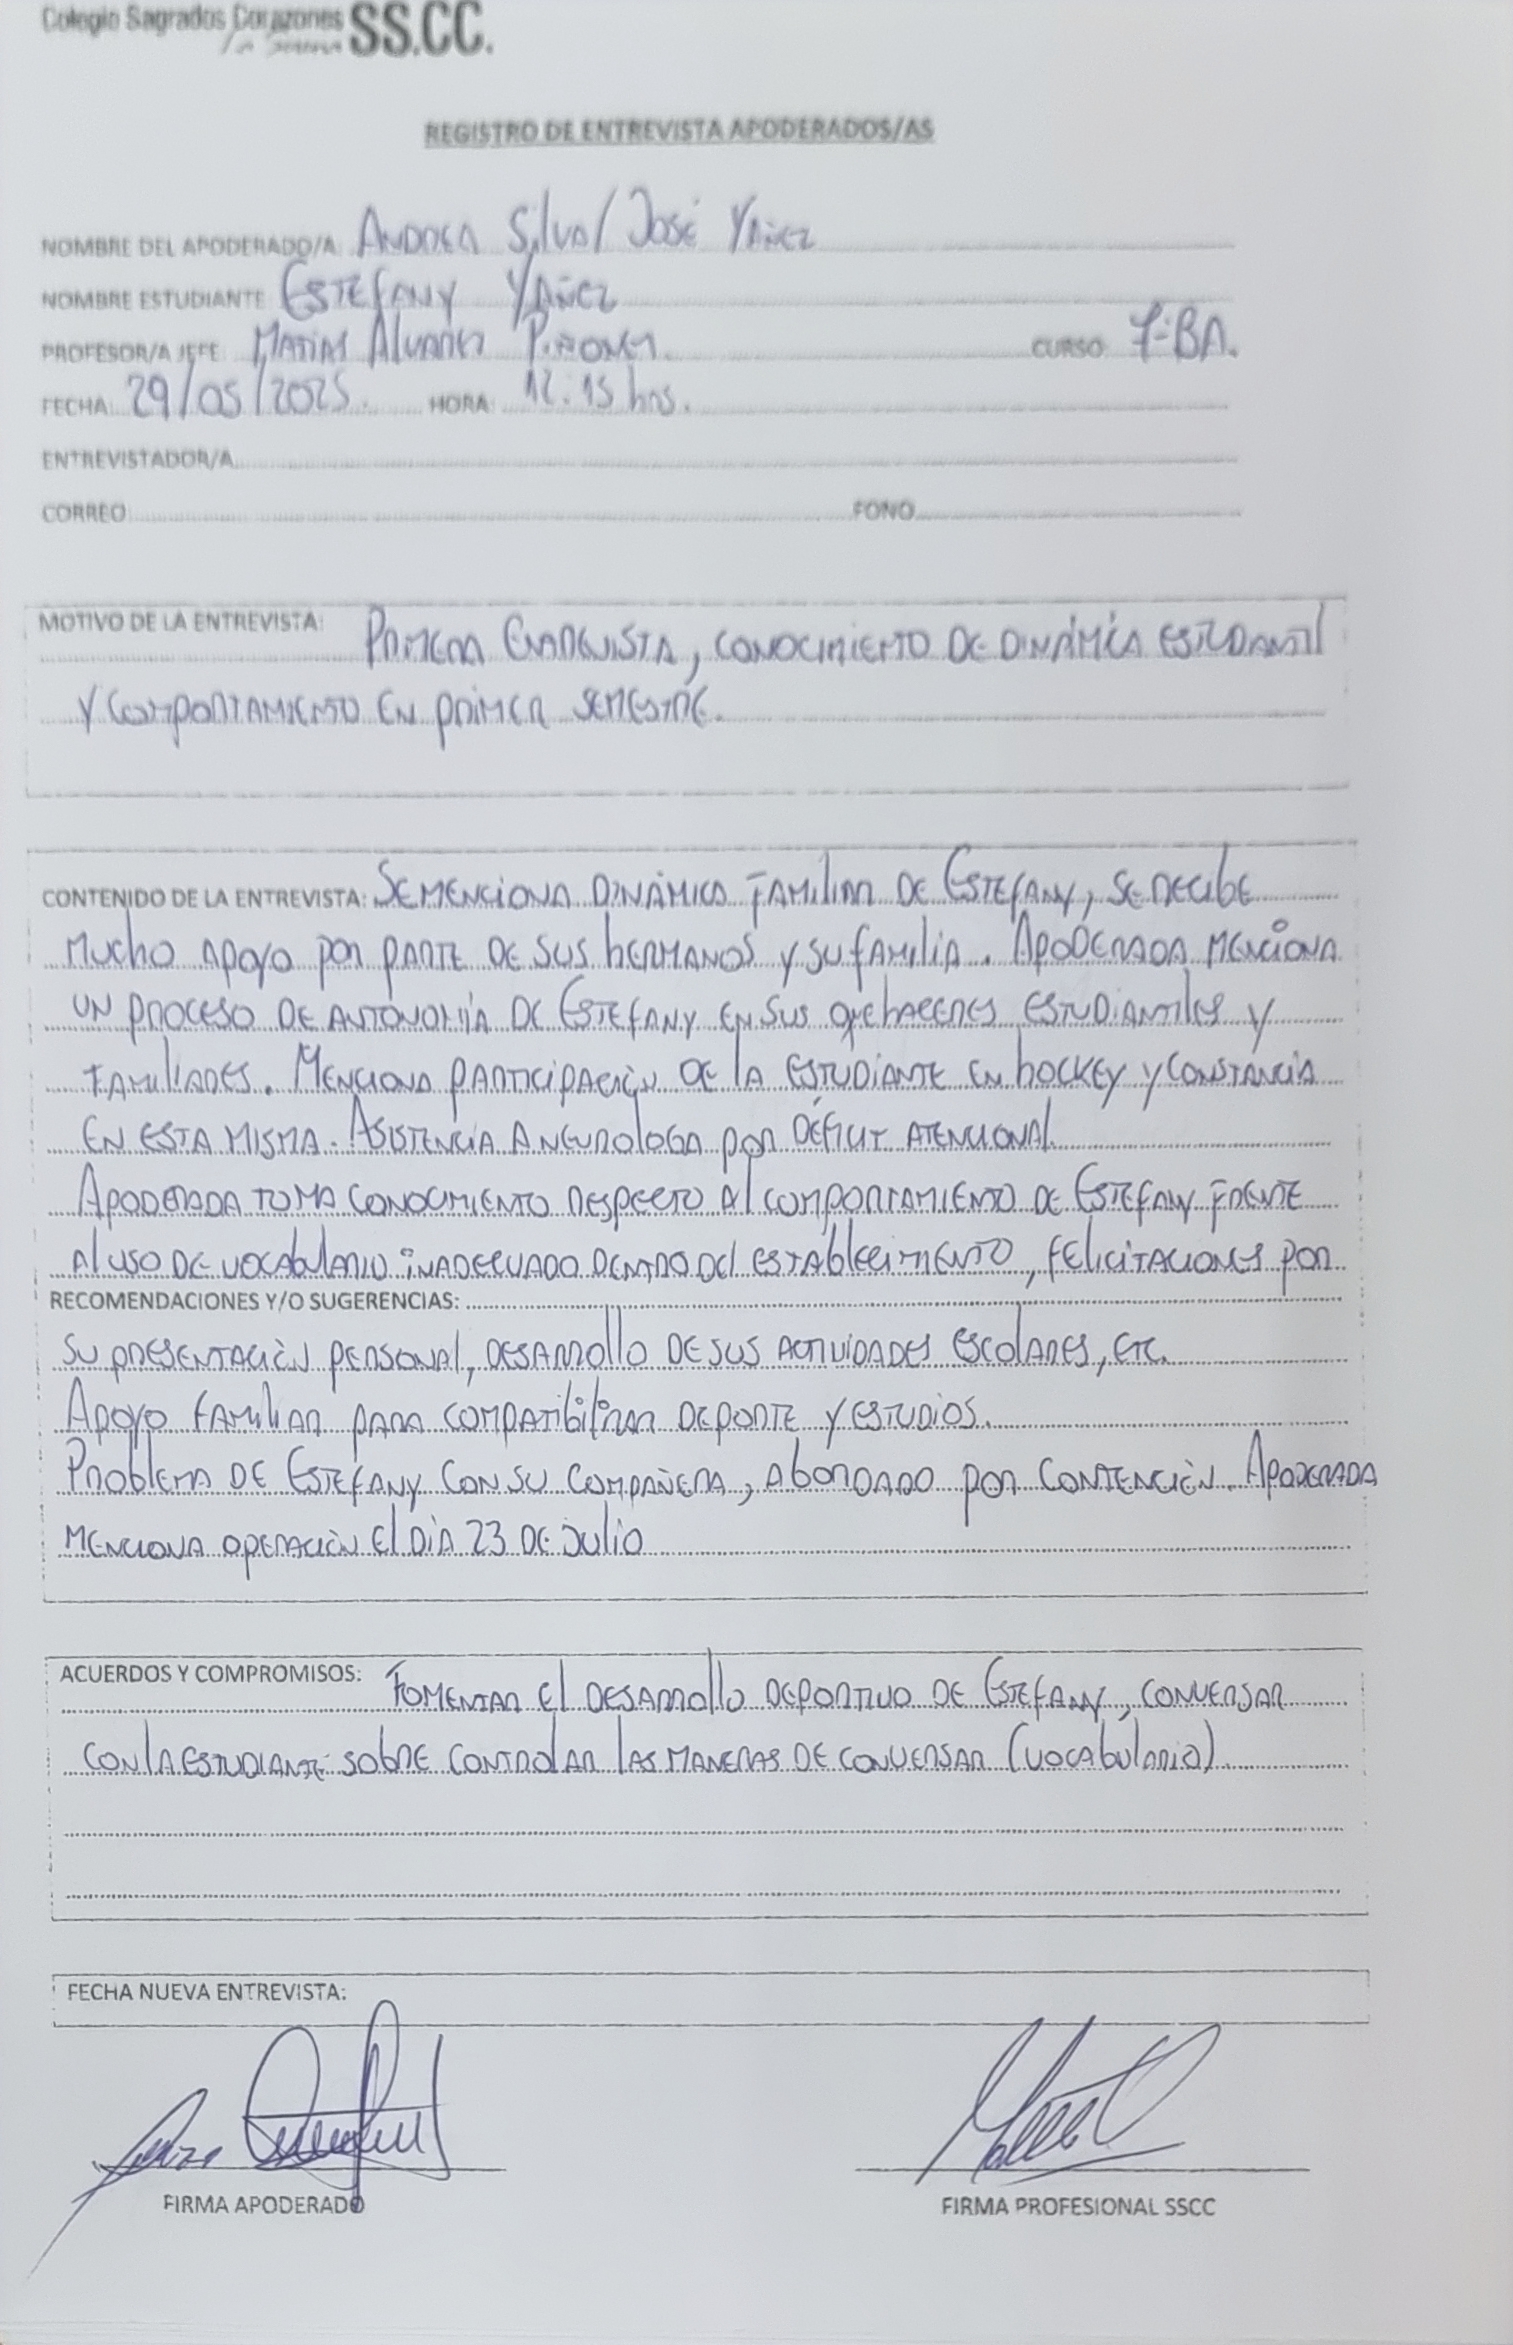 Colegio Sagrados Corazones SS.CC.
La Serena
REGISTRO DE ENTREVISTA APODERADOS/AS
NOMBRE DEL APODERADO/A: ANDREA Silva/ JOSÉ YAÑEZ
NOMBRE ESTUDIANTE: ESTEFANY YAÑEZ
PROFESOR/A JEFE: MATÍAS Alvarez CURSO: 7°BA.
FECHA: 29/05/2025. HORA: 12:15 hrs.
ENTREVISTADOR/A
CORREO FONO
MOTIVO DE LA ENTREVISTA: PRIMERA, CONOCIMIENTO DE DINÁMICA ESTUDIANTIL
Y COMPORTAMIENTO EN PRIMER SEMESTRE.
CONTENIDO DE LA ENTREVISTA: SE MENCIONA DINÁMICA FAMILIAR DE ESTEFANY, SE RECIBE
MUCHO APOYO POR PARTE DE SUS HERMANOS Y SU FAMILIA. APODERADA MENCIONA
UN PROCESO DE AUTONOMÍA DE ESTEFANY EN SUS QUEHACERES ESTUDIANTILES Y
FAMILIARES. MENCIONA PARTICIPACIÓN DE LA ESTUDIANTE EN HOCKEY Y CONSTANCIA
EN ESTA MISMA. ASISTENCIA A NEUROLOGA POR DÉFICIT ATENCIONAL.
APODERADA TOMA CONOCIMIENTO RESPECTO AL COMPORTAMIENTO DE ESTEFANY FRENTE
AL USO DE VOCABULARIO INADECUADO DENTRO DEL ESTABLECIMIENTO, FELICITACIONES POR
RECOMENDACIONES Y/O SUGERENCIAS:
SU PRESENTACIÓN PERSONAL, DESARROLLO DE SUS ACTIVIDADES ESCOLARES, ETC.
APOYO FAMILIAR PARA COMPATIBILIZAR DEPORTE Y ESTUDIOS.
PROBLEMA DE ESTEFANY CON SU COMPAÑERA, ABORDADO POR CONTENCIÓN. APODERADA
MENCIONA OPERACIÓN EL DÍA 23 DE JULIO
ACUERDOS Y COMPROMISOS: FOMENTAR EL DESARROLLO DEPORTIVO DE ESTEFANY, CONVERSAR
CON LA ESTUDIANTE SOBRE CONTROLAR LAS MANERAS DE CONVERSAR (VOCABULARIO).
FECHA NUEVA ENTREVISTA:
FIRMA APODERADO FIRMA PROFESIONAL SSCC